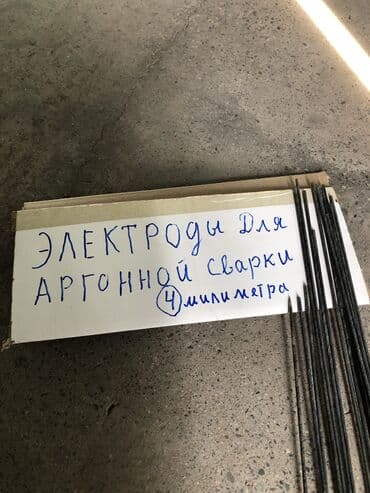 ЭЛЕКТРОДЫ Для
АРГОННОЙ Сварки
4 милиметра